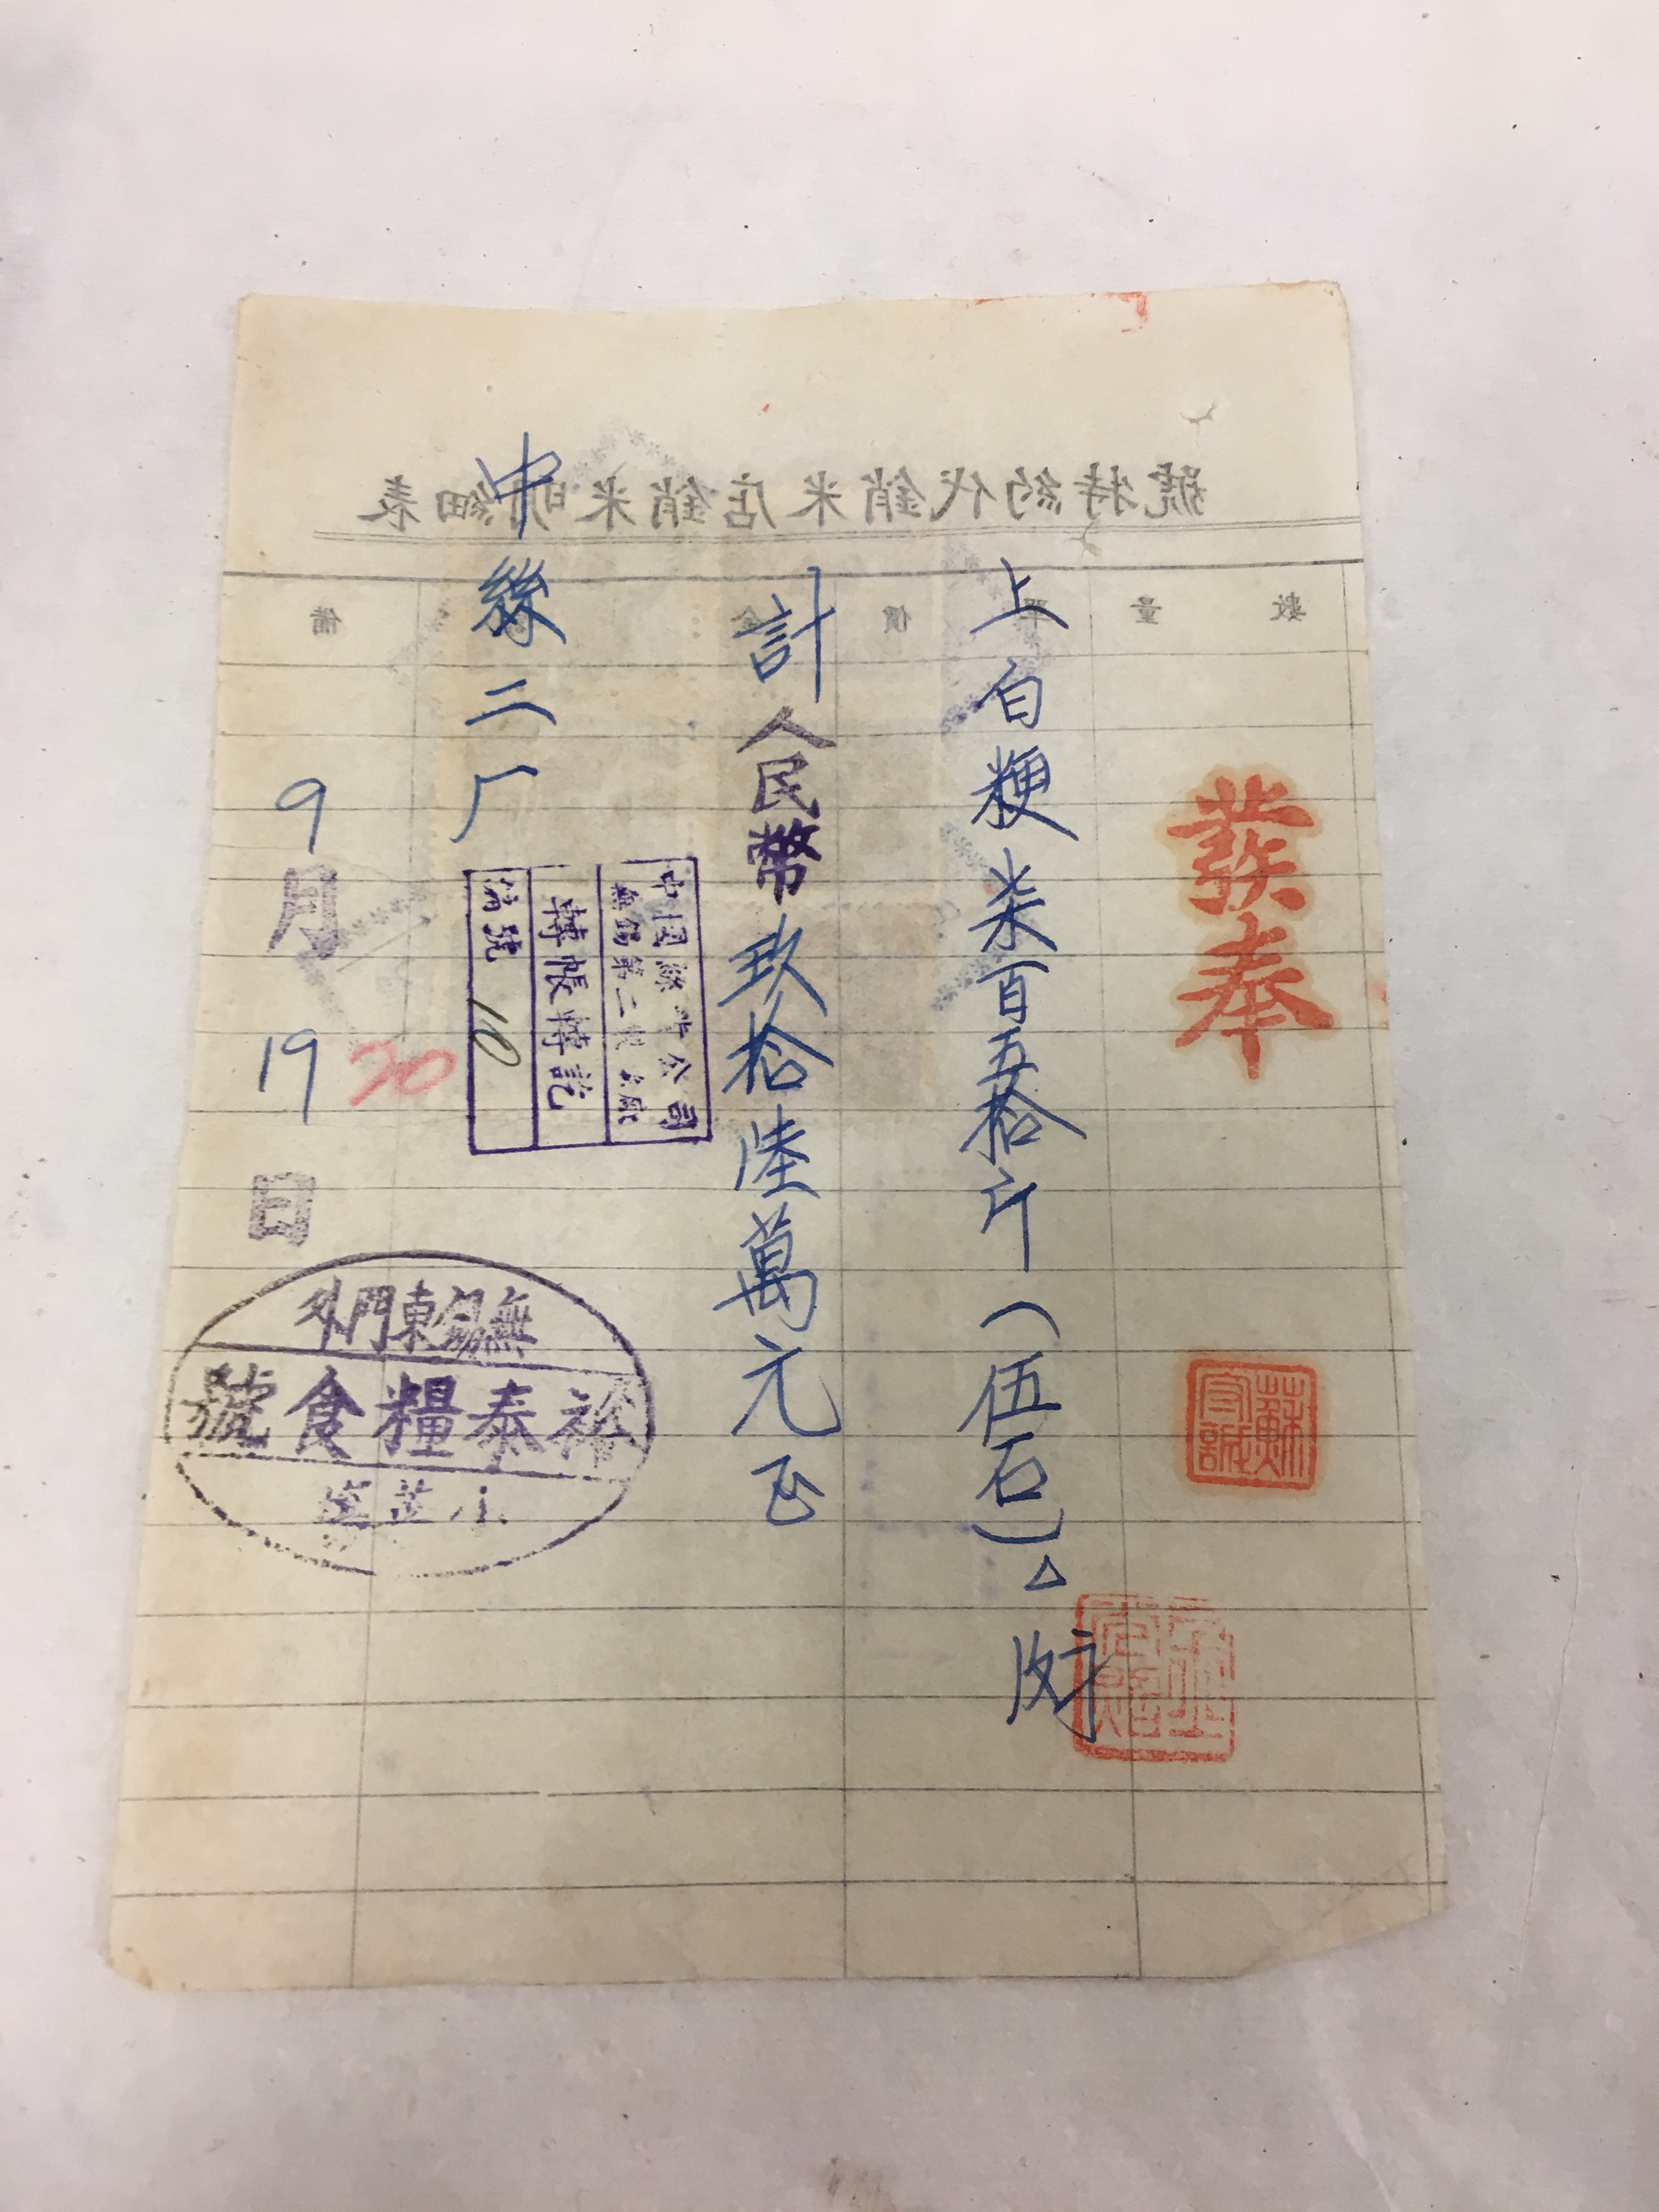 發奉
上白粳柒百五拾斤（伍石）
計人民幣玖拾陸萬元正
中絲二厂
中国絲公司
無錫第二廠
轉帳轉訖
編號 10
9月19日
20
無錫東門外
裕泰糧食號
號特約代銷米店銷米明細表
數量
價
金
備